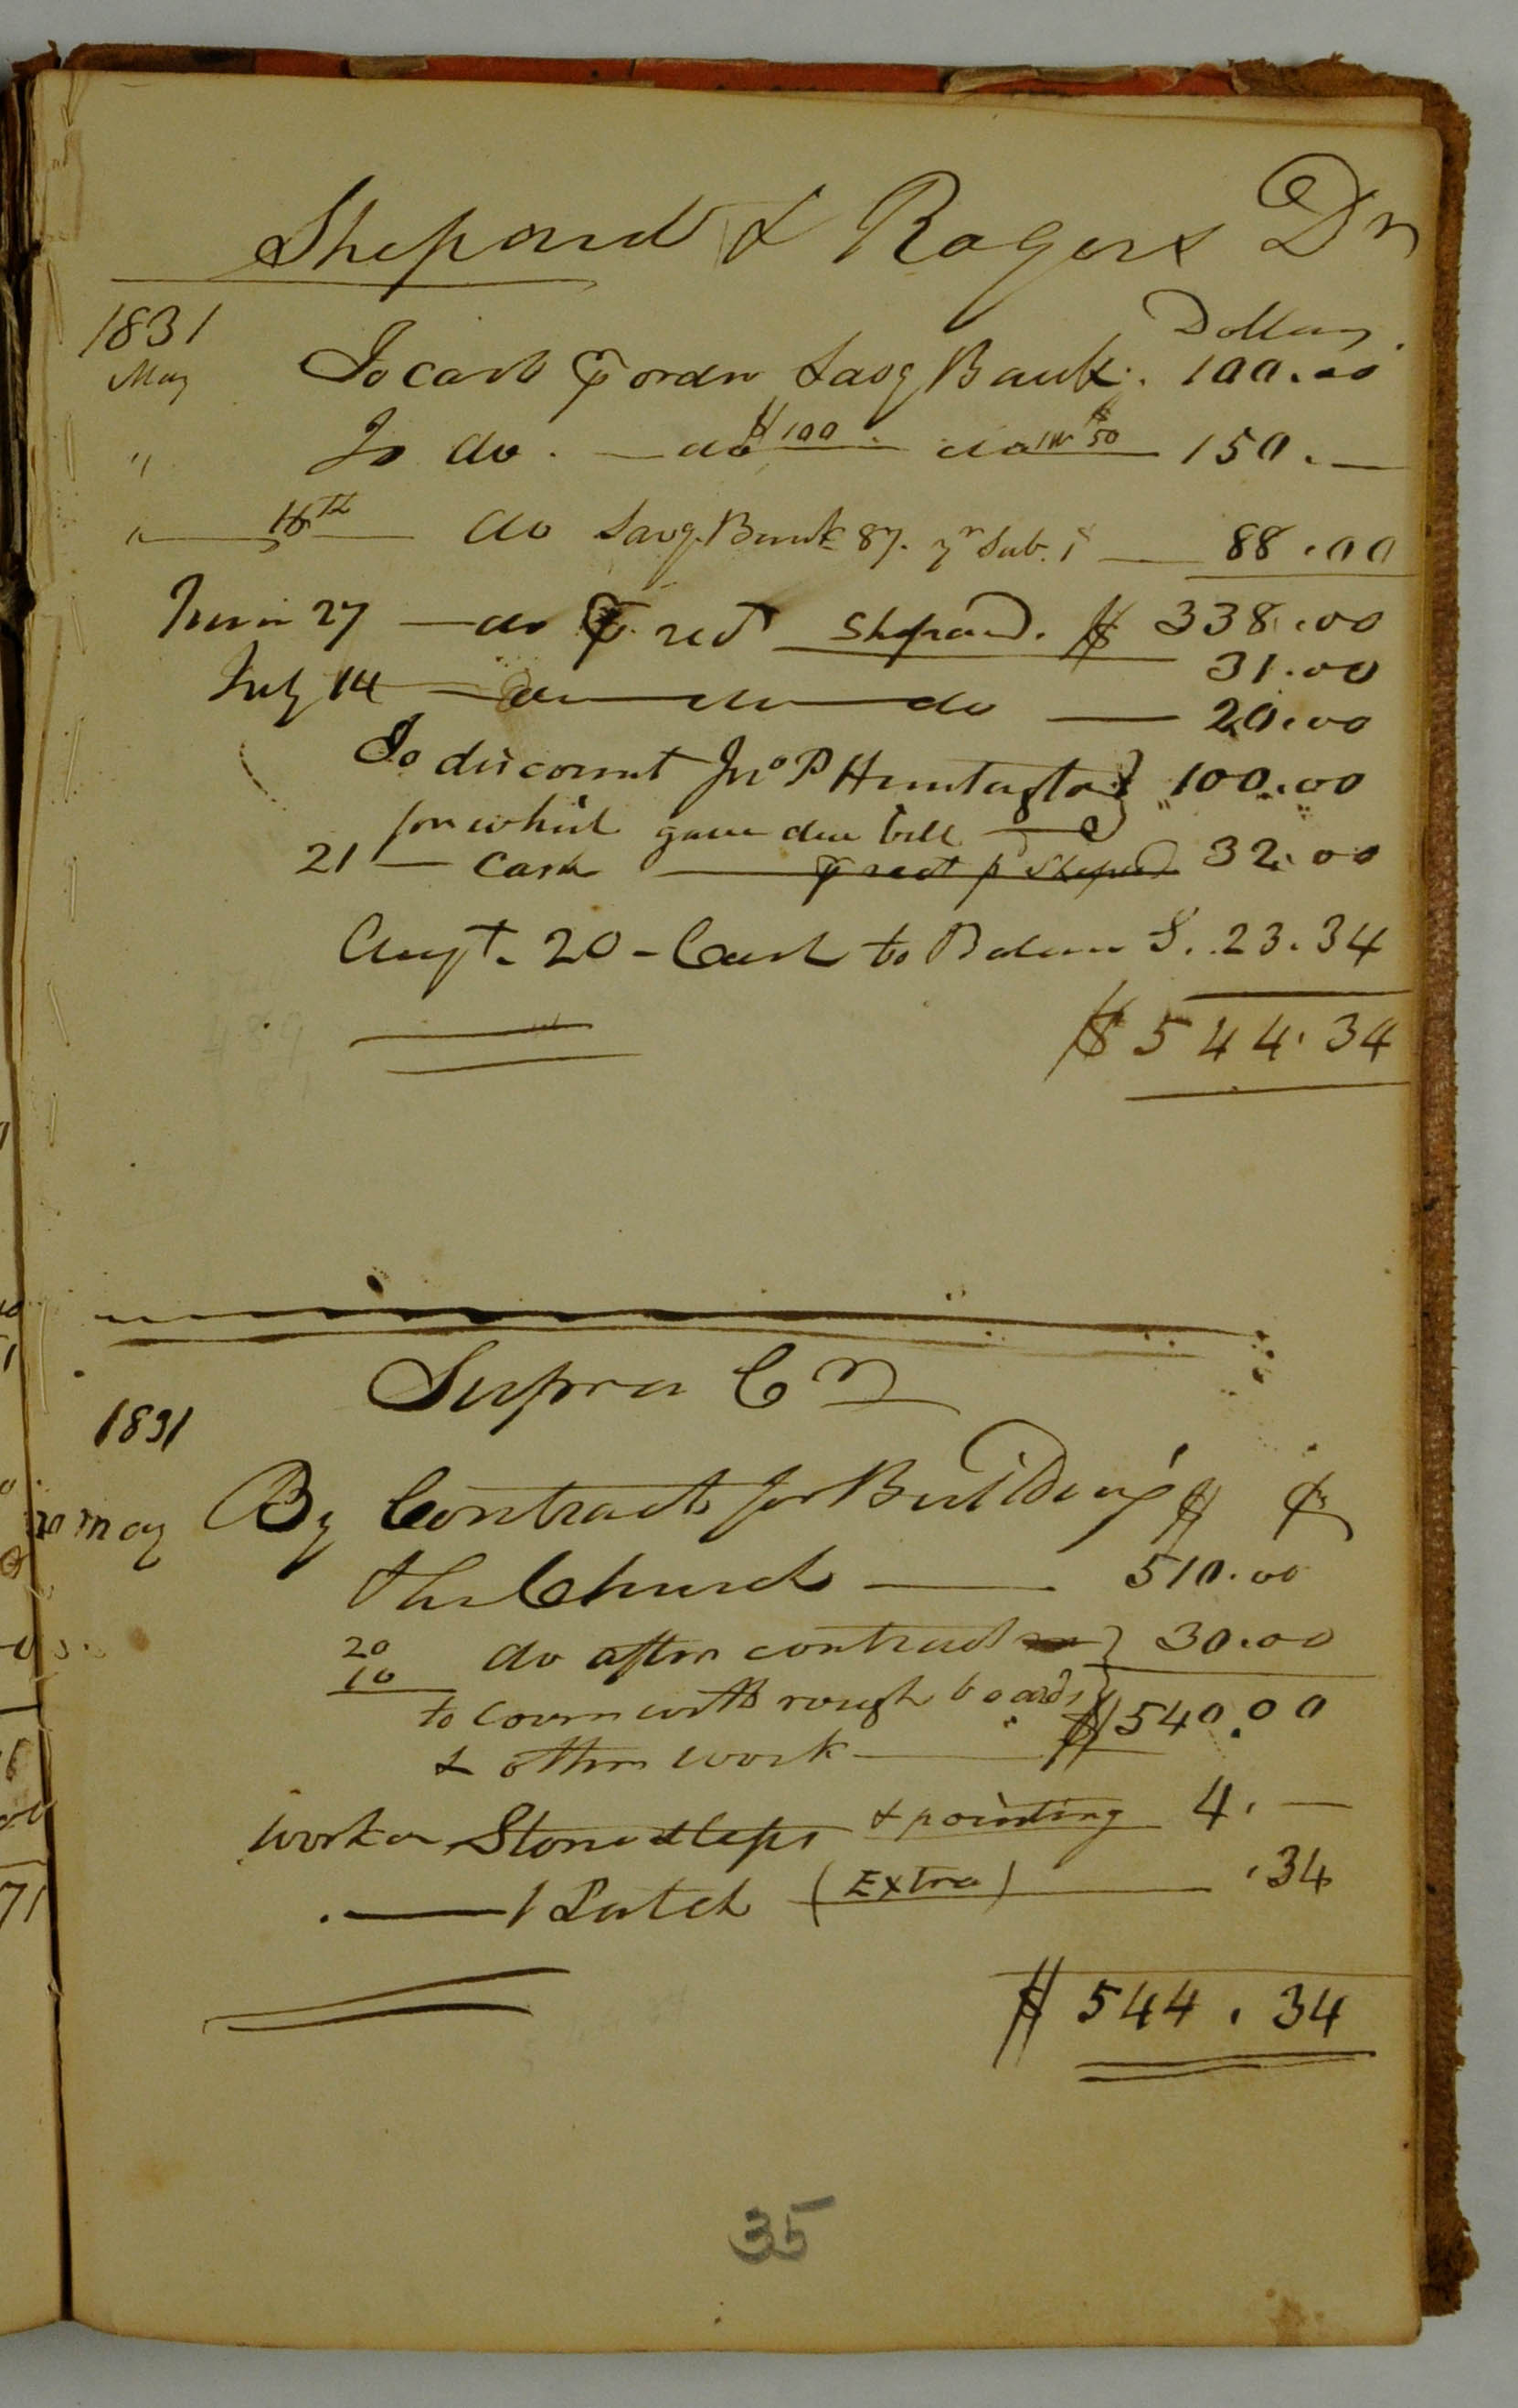 Shepard & Rogers Dr
1831 Dollars
May To cash ⅌ order Savg Bank. 100.00
" To do. — do $100 do $50 150.—
" 16th do Savg. Bank 87. yr Sub. 1 — 88.00
$ 338.00
June 27 — do ⅌ rect Shepard. 31.00
July 14 — do do do — 20.00
To discount Jno P Huntington 100.00
for which gave due bill
21 — Cash ⅌ rect p Shepard 32.00
Augt. 20 - Cash to Balance $. 23.34
$ 544.34
Supra Cr
1831
May By Contract for Building $ ¢
the Church — 510.00
20 do after contract 30.00
10
to cover with rough boards $540.00
& other work
Work on Stone steps & pointing 4.—
— 1 Latch (Extra) — .34
$ 544.34
35